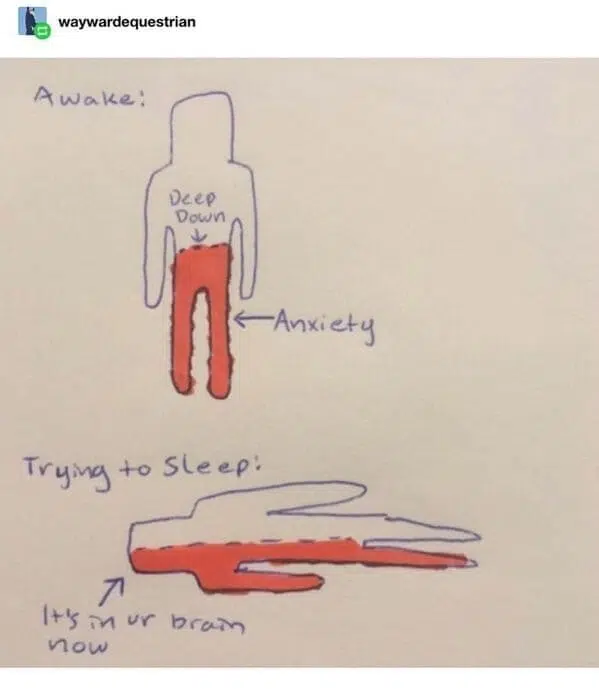 waywardequestrian
Awake:
Deep
Down
Anxiety
Trying to Sleep:
It's in ur brain
now